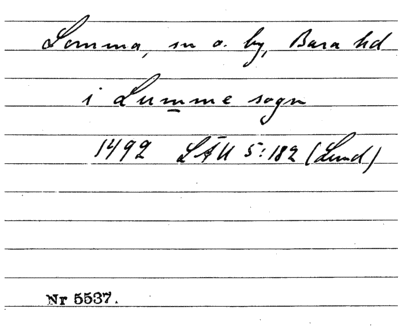 Lomma, sn o. by, Bara hd
i Lumme sogn
1492 LÄU 5:182 (Lund)
Nr 5537.